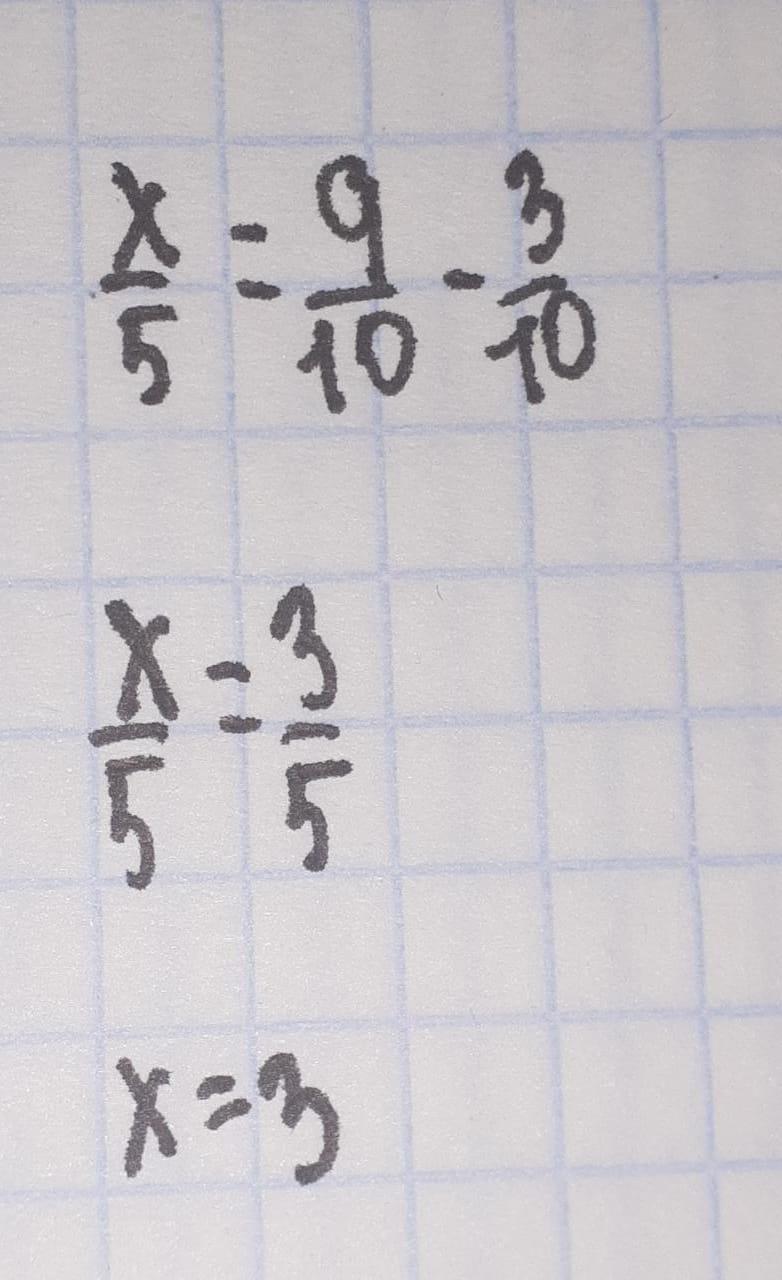 x/5 = 9/10 - 3/10
x/5 = 3/5
x = 3